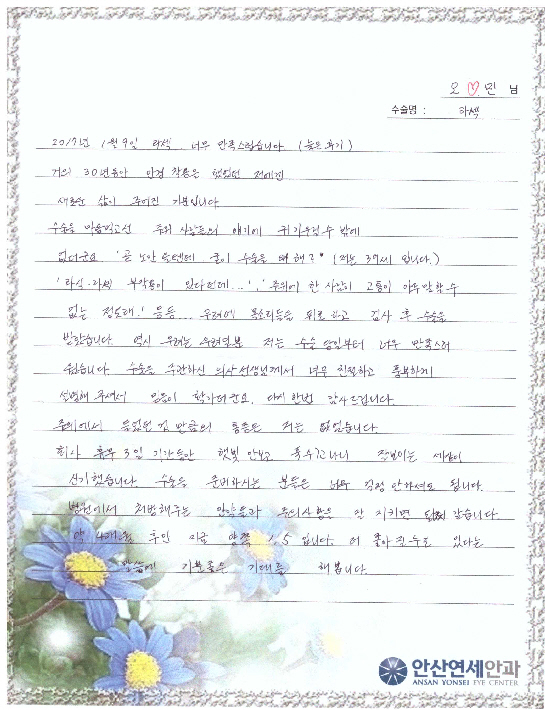 오♡민 님
수술명 : 라섹
2017년 1월 9일 라섹 너무 만족스럽습니다. (늦은 후기)
거의 30년동안 안경 착용을 했었던 저에겐
새로운 삶이 주어진 기분입니다.
수술을 마음먹고선 주위 사람들의 얘기에 귀기우릴수 밖에
없더군요 '곧 노안 올텐데 굳이 수술을 왜 해?' (저는 39세 입니다.)
'라식·라섹 부작용이 있다던데...', '주위에 한 사람이 고통이 이루말할수
없는 정도래.' 등등... 우려의 목소리들을 뒤로 하고 검사 후 수술을
받았습니다. 역시 우려는 우려일뿐 저는 수술 당일부터 너무 만족스러
웠습니다. 수술을 주관하신 의사선생님께서 너무 친절하고 풍부하게
설명해 주셔서 믿음이 확가더군요. 다시 한번 감사드립니다.
주위에서 들었던 것 만큼의 통증은 저는 없었습니다.
회사 휴무 3일 기간동안 햇빛 안보고 푹쉬고나니 잘보이는 세상이
신기했습니다. 수술을 준비하시는 분들은 너무 걱정 안하셔도 됩니다.
병원에서 처방해주는 안약들과 주의사항은 잘 지키면 될꺼 같습니다.
약 4개월 후인 지금 양쪽 1.5 입니다. 더 좋아질수도 있다는
말씀에 기분좋은 기대를 해봅니다.
안산연세안과
ANSAN YONSEI EYE CENTER